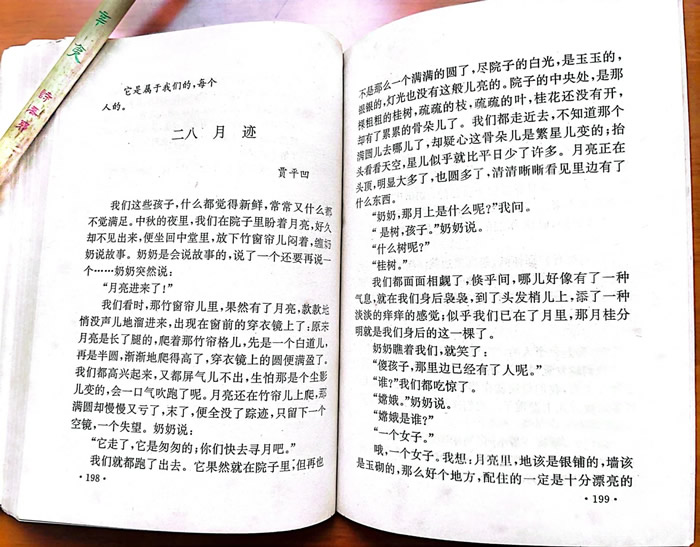 它是属于我们的，每个
人的。
二八 月迹
贾平凹
我们这些孩子，什么都觉得新鲜，常常又什么都
不觉满足。中秋的夜里，我们在院子里盼着月亮，好久
却不见出来，便坐回中堂里，放下竹窗帘儿闷着，缠奶
奶说故事。奶奶是会说故事的，说了一个还要再说一
个……奶奶突然说：
“月亮进来了！”
我们看时，那竹窗帘儿里，果然有了月亮，款款地
悄没声儿地溜进来，出现在窗前的穿衣镜上了：原来
月亮是长了腿的，爬着那竹帘格儿，先是一个白道儿，
再是半圆，渐渐地爬得高了，穿衣镜上的圆便满盈了。
我们都高兴起来，又都屏气儿不出，生怕那是个尘影
儿变的，会一口气吹跑了呢。月亮还在竹帘儿上爬，那
满圆却慢慢又亏了，末了，便全没了踪迹，只留下一个
空镜，一个失望。奶奶说：
“它走了，它是匆匆的；你们快去寻月吧。”
我们就都跑了出去。它果然就在院子里，但再也
·198·
不是那么一个满满的圆了，尽院子的白光，是玉玉的，
银银的，灯光也没有这般儿亮的。院子的中央处，是那
棵粗粗的桂树，疏疏的枝，疏疏的叶，桂花还没有开，
却有了累累的骨朵儿了。我们都走近去，不知道那个
满圆儿去哪儿了，却疑心这骨朵儿是繁星儿变的；抬
头看看天空，星儿似乎就比平日少了许多。月亮正在
头顶，明显大多了，也圆多了，清清晰晰看见里边有了
什么东西。
“奶奶，那月上是什么呢？”我问。
“是树，孩子。”奶奶说。
“什么树呢？”
“桂树。”
我们都面面相觑了，倏乎间，哪儿好像有了一种
气息，就在我们身后袅袅，到了头发梢儿上，添了一种
淡淡的痒痒的感觉；似乎我们已在了月里，那月桂分
明就是我们身后的这一棵了。
奶奶瞧着我们，就笑了：
“傻孩子，那里边已经有了人呢。”
“谁？”我们都吃惊了。
“嫦娥。”奶奶说。
“嫦娥是谁？”
“一个女子。”
哦，一个女子。我想：月亮里，地该是银铺的，墙该
是玉砌的，那么好个地方，配住的一定是十分漂亮的
·199·